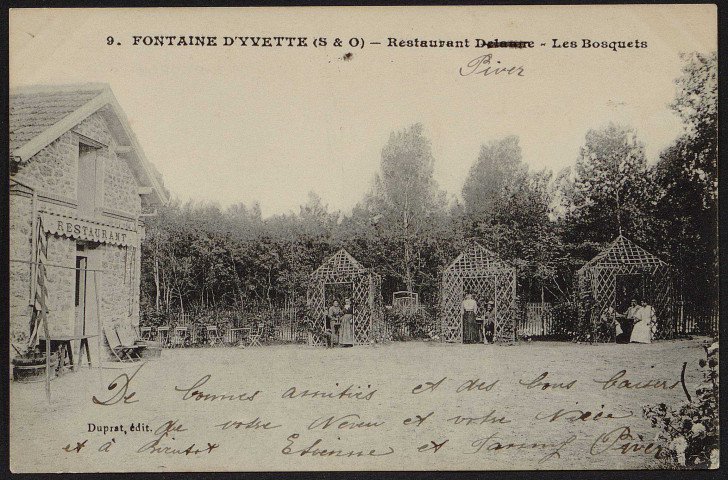 9. FONTAINE D'YVETTE (S & O) — Restaurant Delaune - Les Bosquets
Piver
RESTAURANT
De bonnes amitiés et des bons baisers
Duprat, édit. de votre Neveu et votre Nièce
et à bientôt Etienne et Fanny Piver